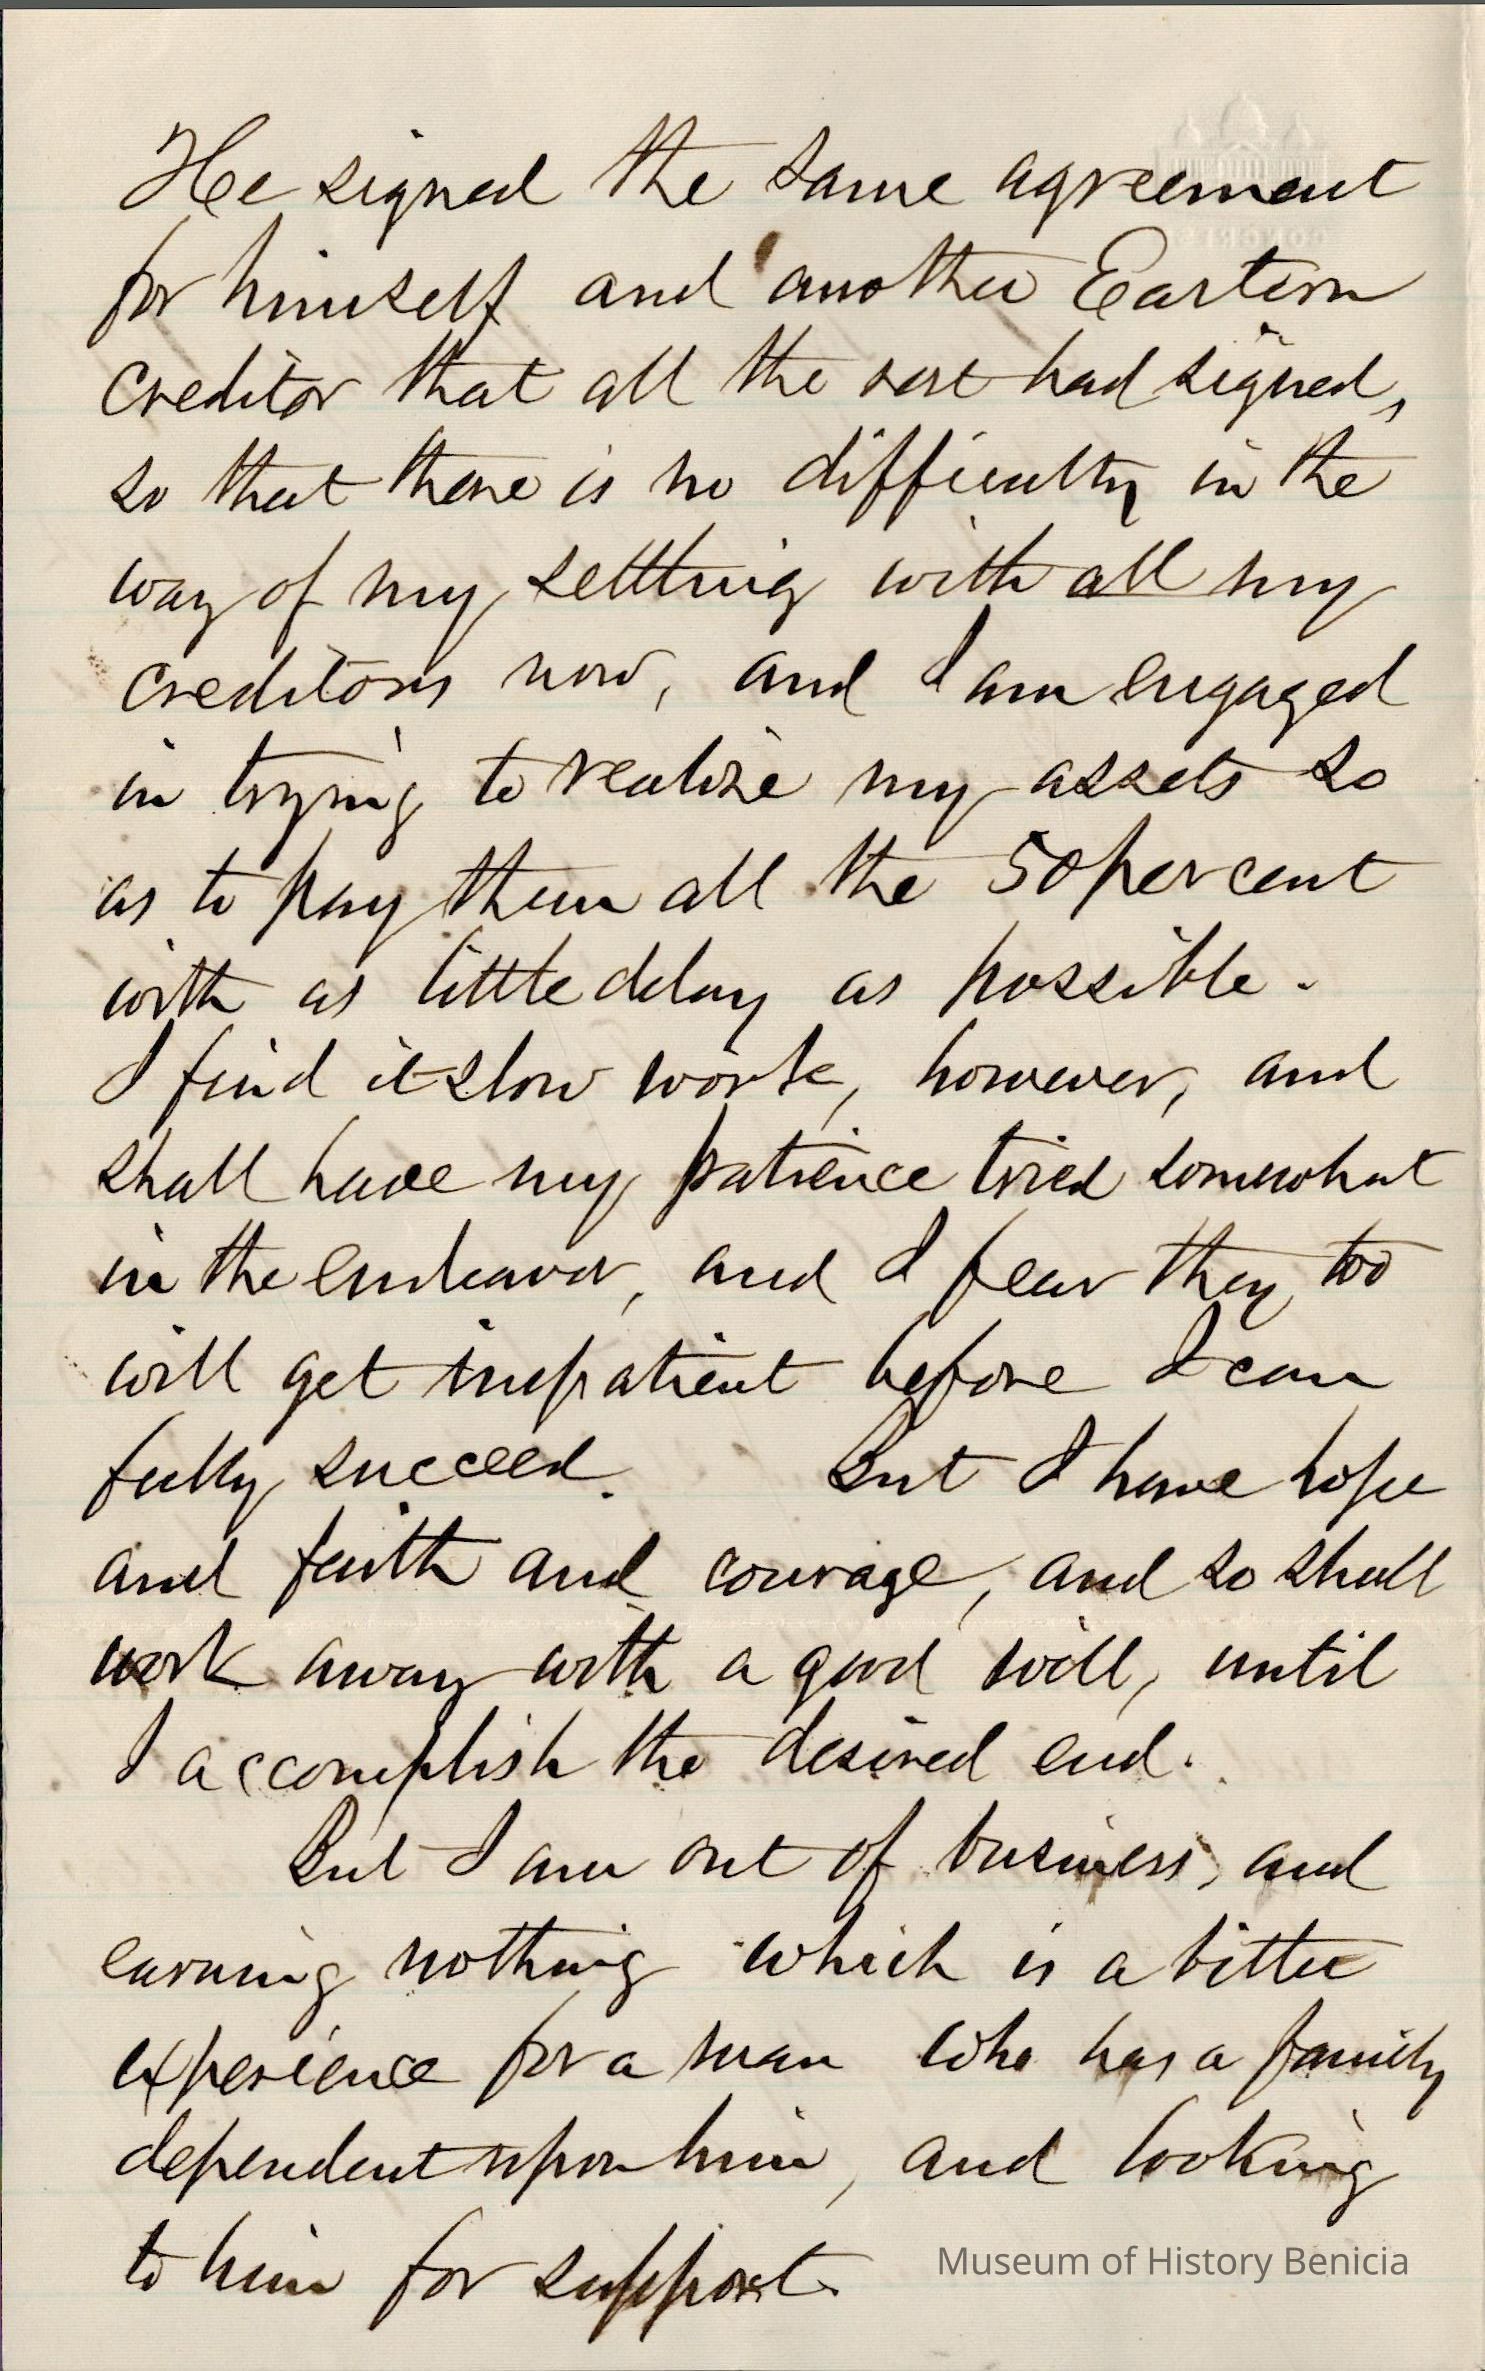 He signed the same agreement
for himself and another Eastern
creditor that all the rest had signed,
so that there is no difficulty in the
way of my settling with all my
creditors now, and I am engaged
in trying to realize my assets so
as to pay them all the 50 per cent
with as little delay as possible.
I find it slow work, however, and
shall have my patience tried somewhat
in the endeavor, and I fear they too
will get impatient before I can
fully succeed. But I have hope
and faith and courage, and so shall
work away with a good will, until
I accomplish the desired end.
But I am out of business, and
earning nothing which is a bitter
experience for a man who has a family
dependent upon him, and looking
to him for support.
Museum of History Benicia